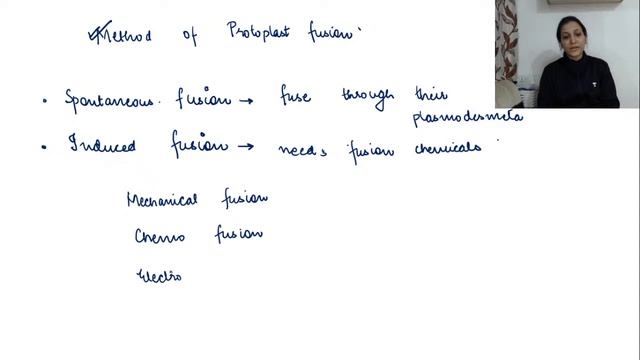 Method of Protoplast fusion
• Spontaneous fusion → fuse through their
plasmodesmeta
• Induced fusion → needs fusion chemicals
Mechanical fusion
Chemo fusion
Electro